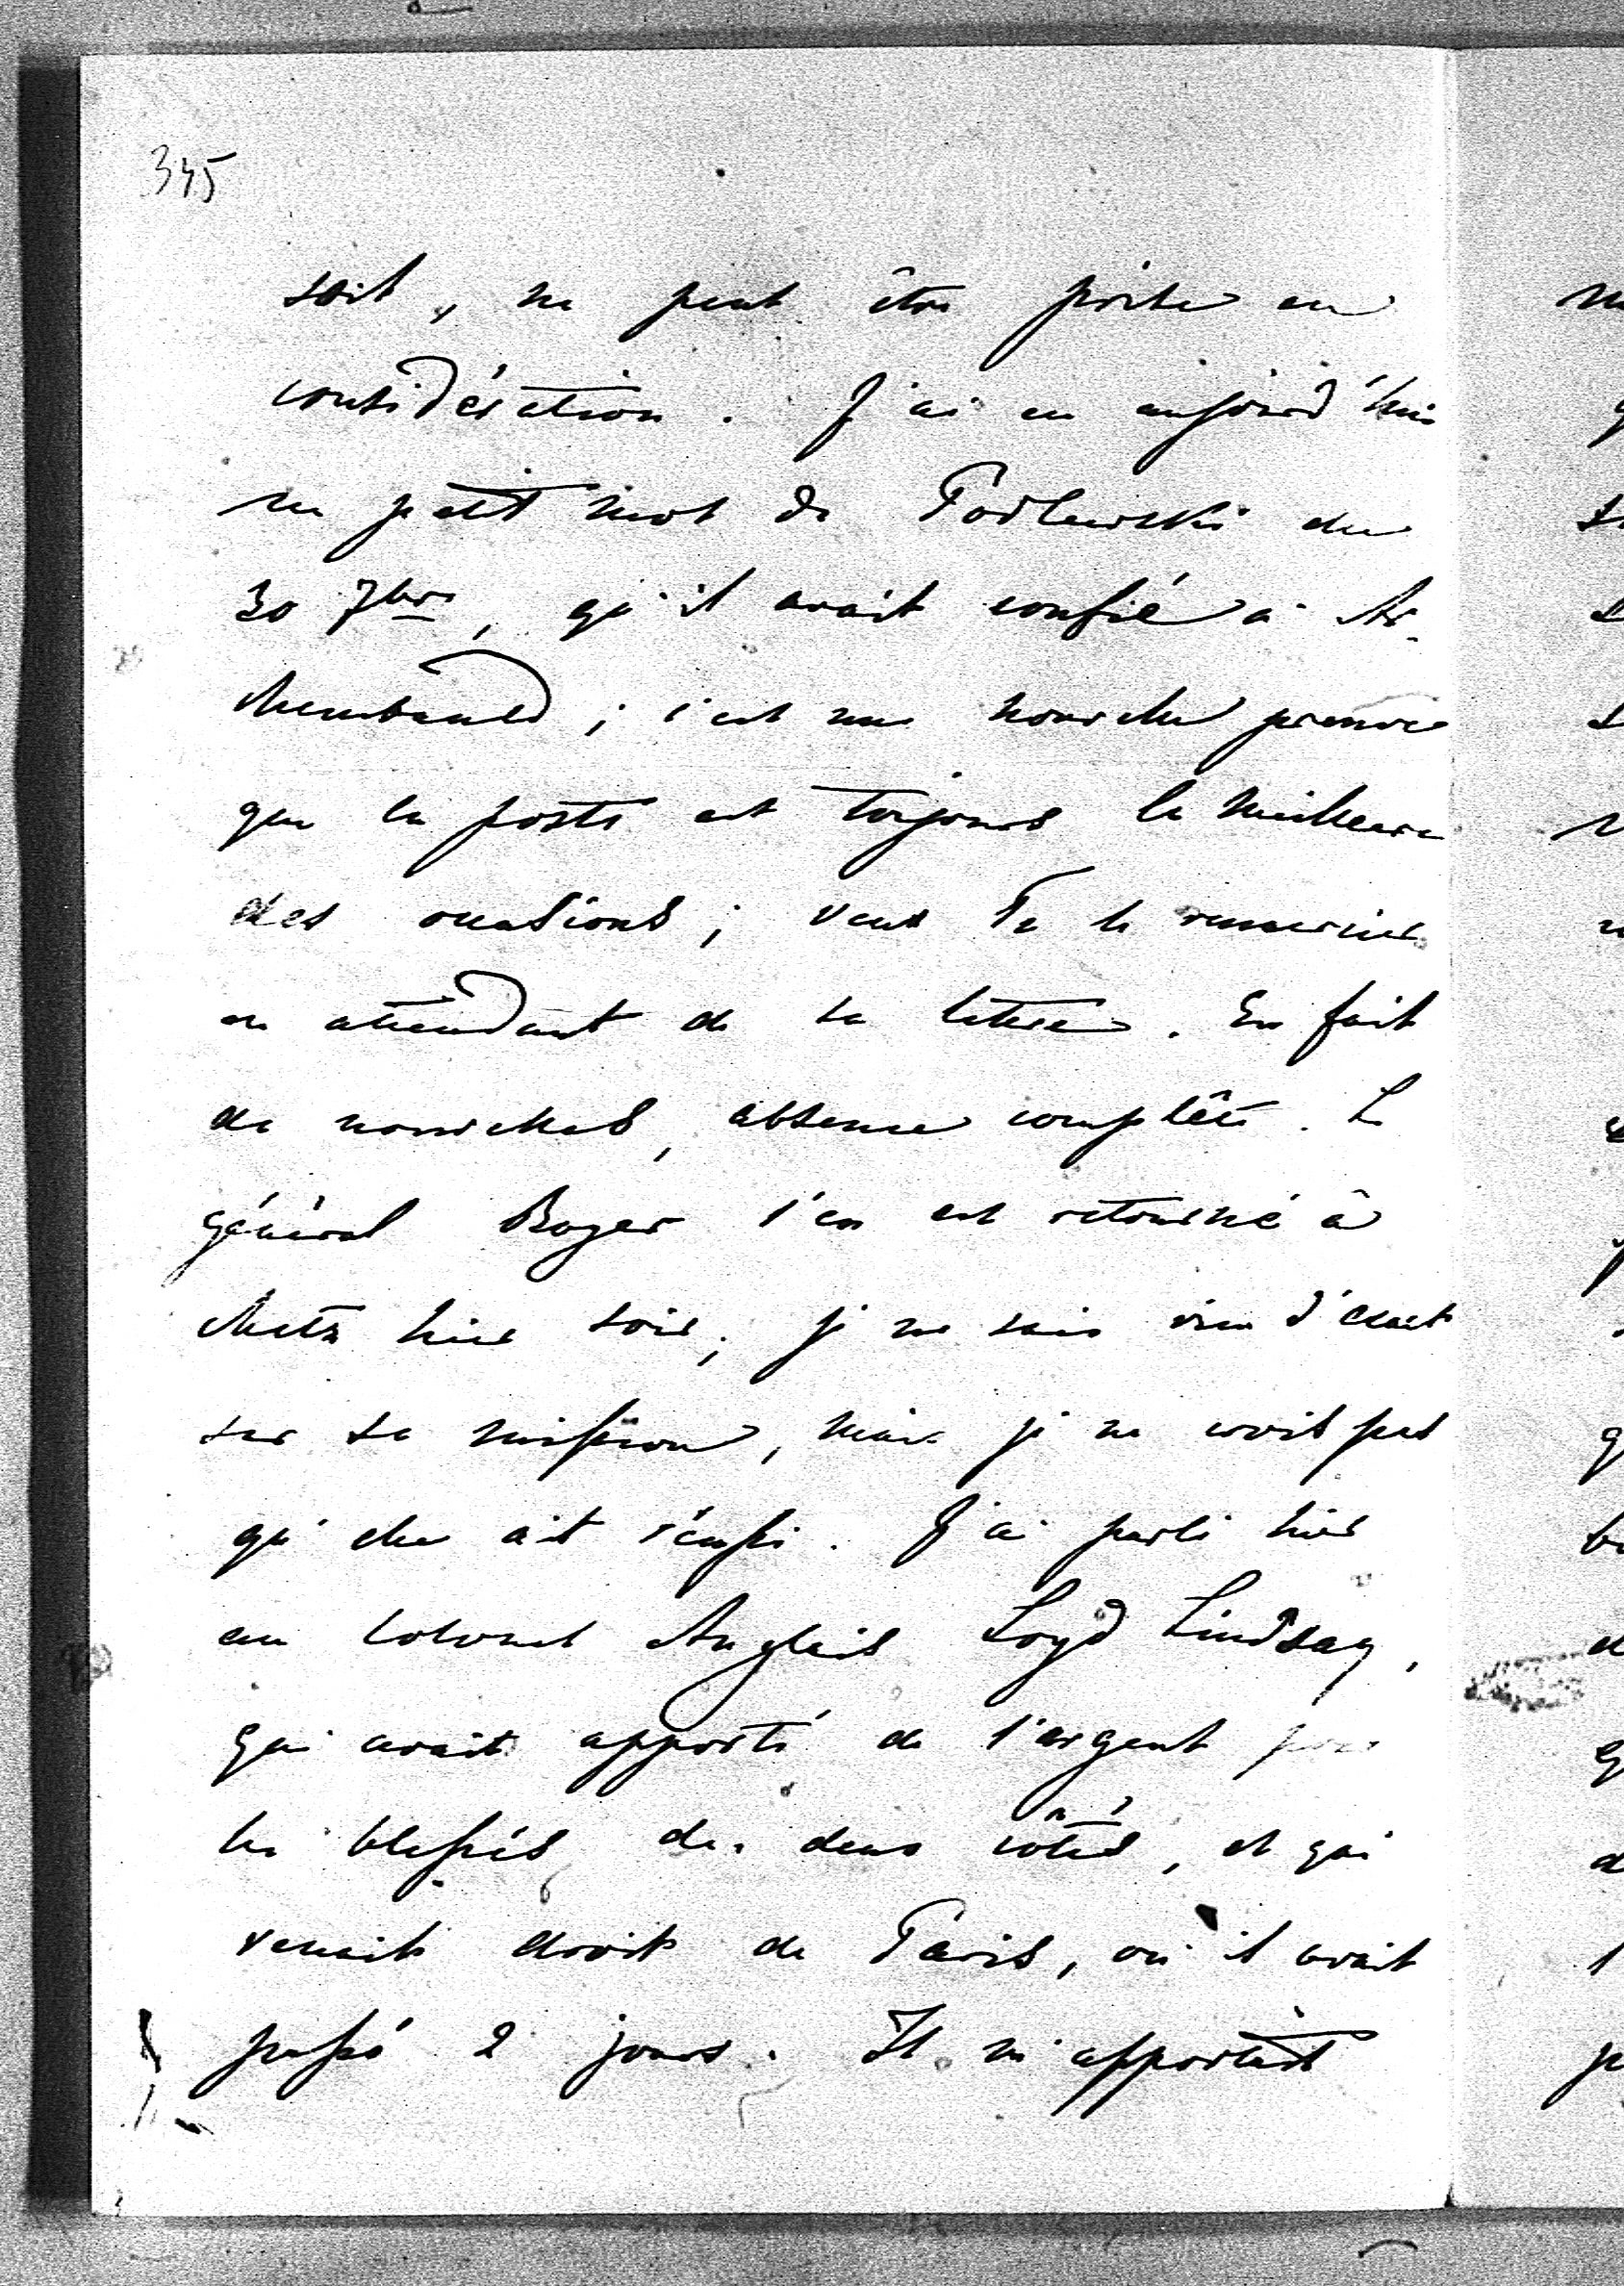 345
soit, ne peut être prise en
considération. J'ai eu aujourd'hui
un petit mot de Podlewski du
30 7bre, qu'il avait confié à Ar-
chembauld; c'est une nouvelle preuve
que la poste est toujours la meilleure
des occasions; veux Tu le remercier
en attendant de sa lettre. En fait
de nouvelles, absence complête. Le
général Boyer s'en est retourné à
Metz hier soir; je ne sais rien d'exact
sur sa mission, mais je ne crois pas
qu'elle ait réussi. J'ai parlé hier
au Colonel Anglais Loyd Lindsay,
qui avait apporté de l'argent pour
les blessés des deux côtés, et qui
venait droit de Paris, où il avait
passé 2 jours. Il m'apportait